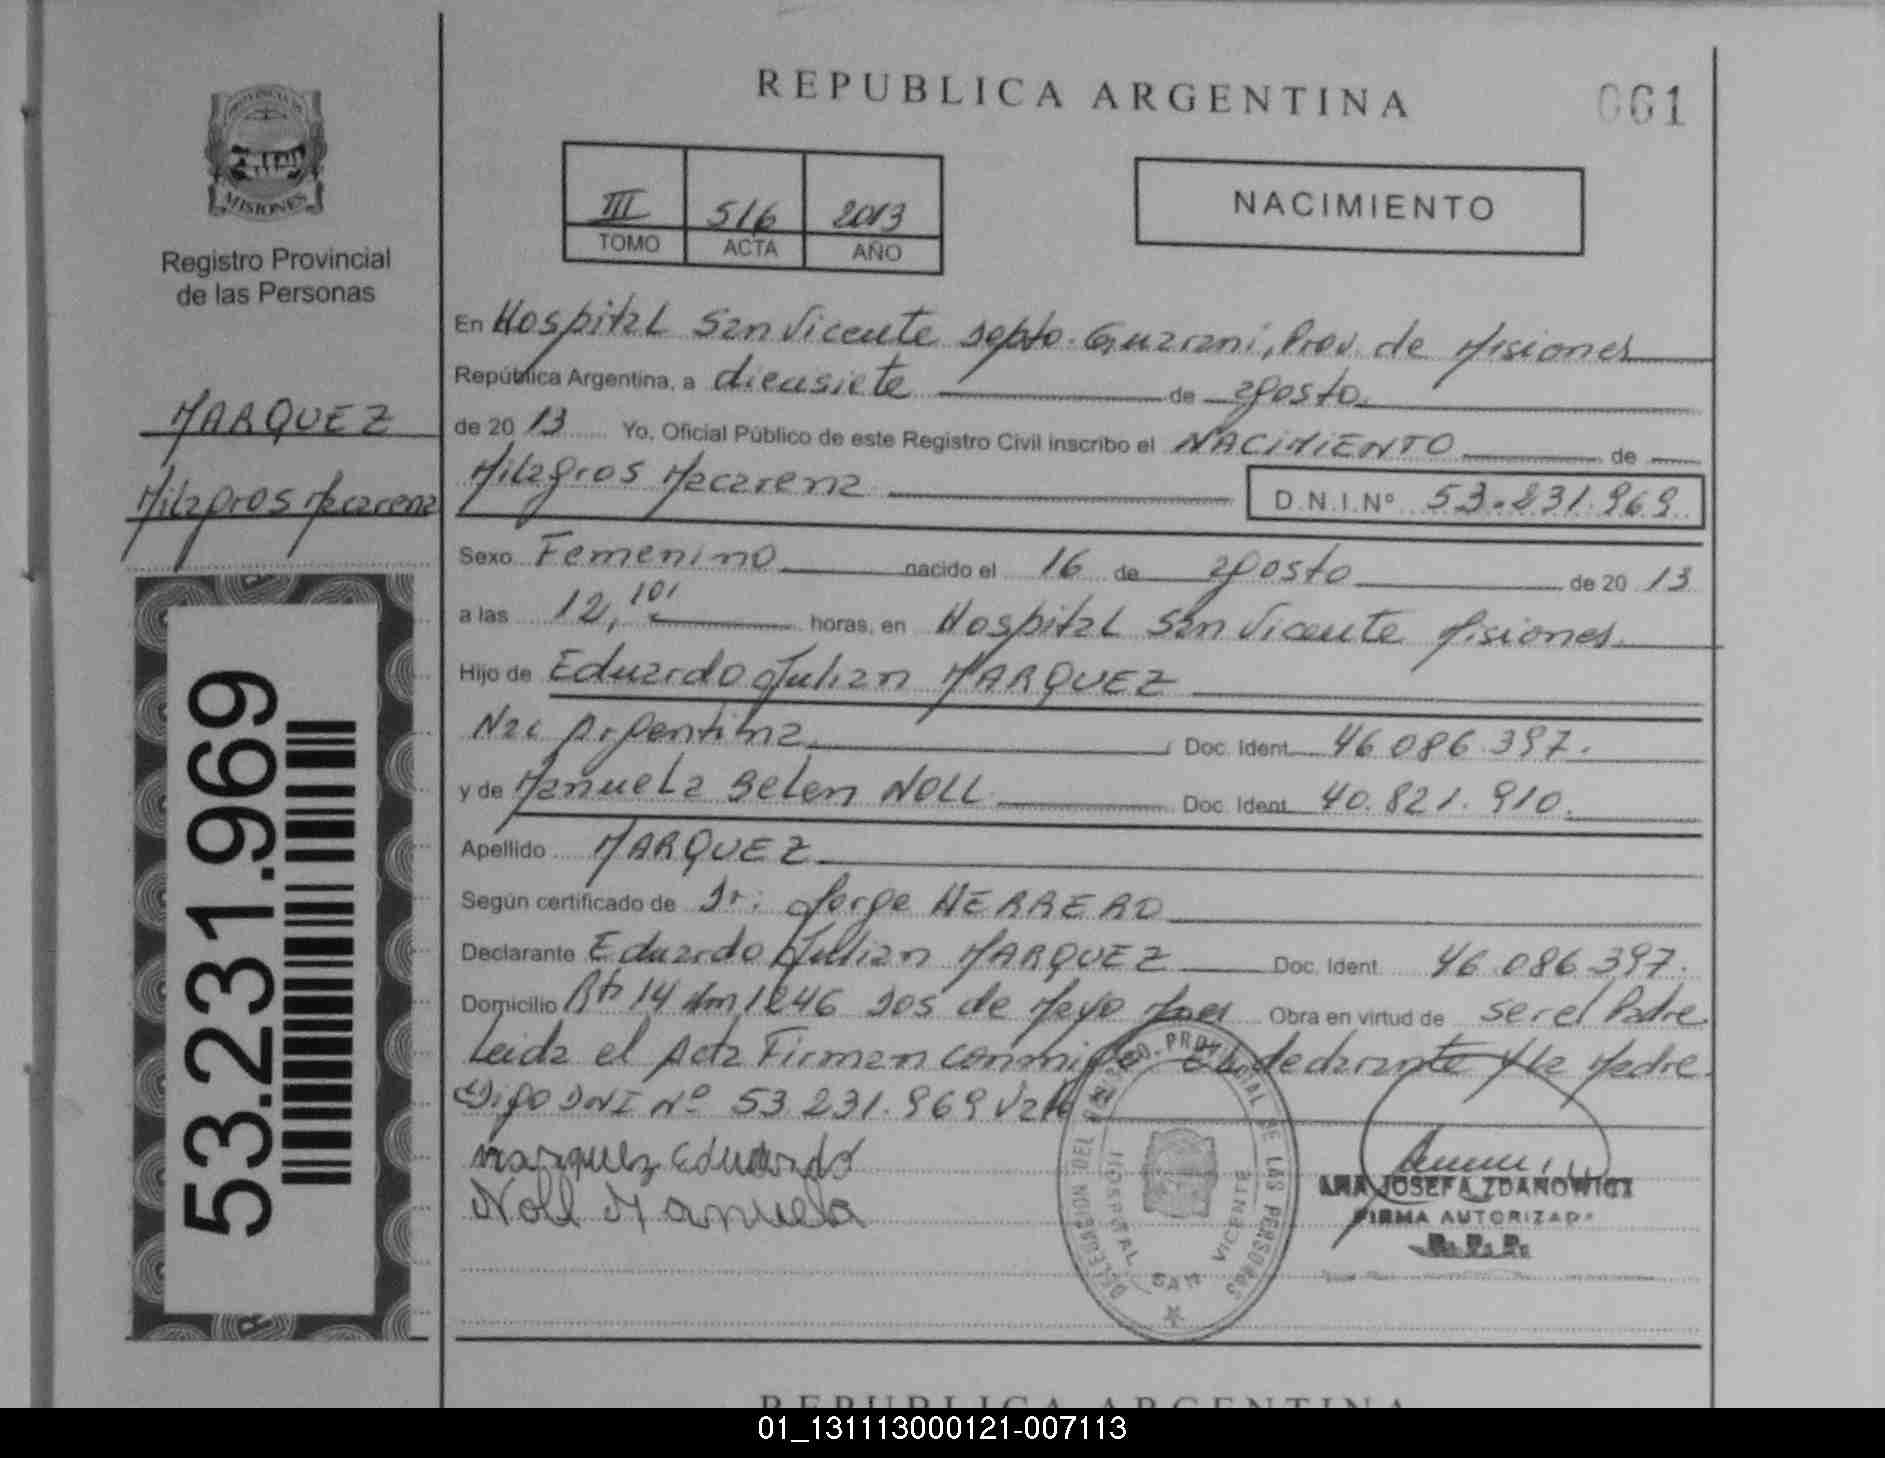 REPUBLICA ARGENTINA
001
PROVINCIA DE
MISIONES
Registro Provincial
de las Personas
III 516 2013
TOMO ACTA AÑO
NACIMIENTO
MARQUEZ
Milagros Macarena
53.231.969
En Hospital San Vicente Depto. Guarani, Prov. de Misiones
República Argentina, a diecisiete de agosto
de 20 13 Yo, Oficial Público de este Registro Civil inscribo el NACIMIENTO de
Milagros Macarena D.N.I.Nº 53.231.969
Sexo Femenino nacido el 16 de agosto de 20 13
a las 12,10' horas, en Hospital San Vicente Misiones
Hijo de Eduardo Julian MARQUEZ
Nac Argentina Doc. Ident. 46.086.397.
y de Manuela Belen NOLL Doc. Ident. 40.821.910.
Apellido MARQUEZ
Según certificado de Dr: Jorge HERRERO
Declarante Eduardo Julian MARQUEZ Doc. Ident. 46.086.397.
Domicilio 14 Km 1246 Dos de Mayo Mnes Obra en virtud de ser el Padre
Leida el Acta Firman conmigo declarante y la Madre.
Digo DNI Nº 53.231.969 Vale
Marquez Eduardo
Noll Manuela
DELEGACION DEL REGISTRO PROVINCIAL DE LAS PERSONAS
HOSPITAL SAN VICENTE
ANA JOSEFA ZDANOWICZ
FIRMA AUTORIZADA
R. P. P.
REPUBLICA ARGENTINA
01_131113000121-007113